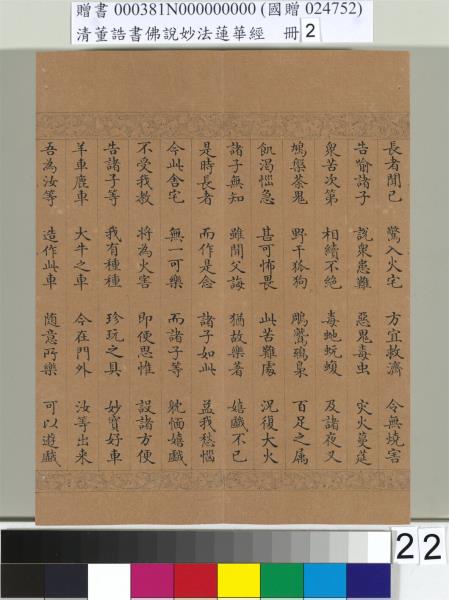 贈書 000381N000000000 (國贈 024752)
清董誥書佛說妙法蓮華經 冊 2
長者聞已 驚入火宅 方宜救濟 令無燒害
告喻諸子 說眾患難 惡鬼毒虫 灾火蔓莚
眾苦次第 相續不絕 毒虵蚖蝮 及諸夜叉
鳩槃荼鬼 野干狐狗 鵰鷲鴟梟 百足之屬
飢渴惱急 甚可怖畏 此苦難處 況復大火
諸子無知 雖聞父誨 猶故樂著 嬉戲不已
是時長者 而作是念 諸子如此 益我愁惱
今此舍宅 無一可樂 而諸子等 躭湎嬉戲
不受我教 將為火害 即便思惟 設諸方便
告諸子等 我有種種 珍玩之具 妙寶好車
羊車鹿車 大牛之車 今在門外 汝等出来
吾為汝等 造作此車 随意所樂 可以遊戲
22